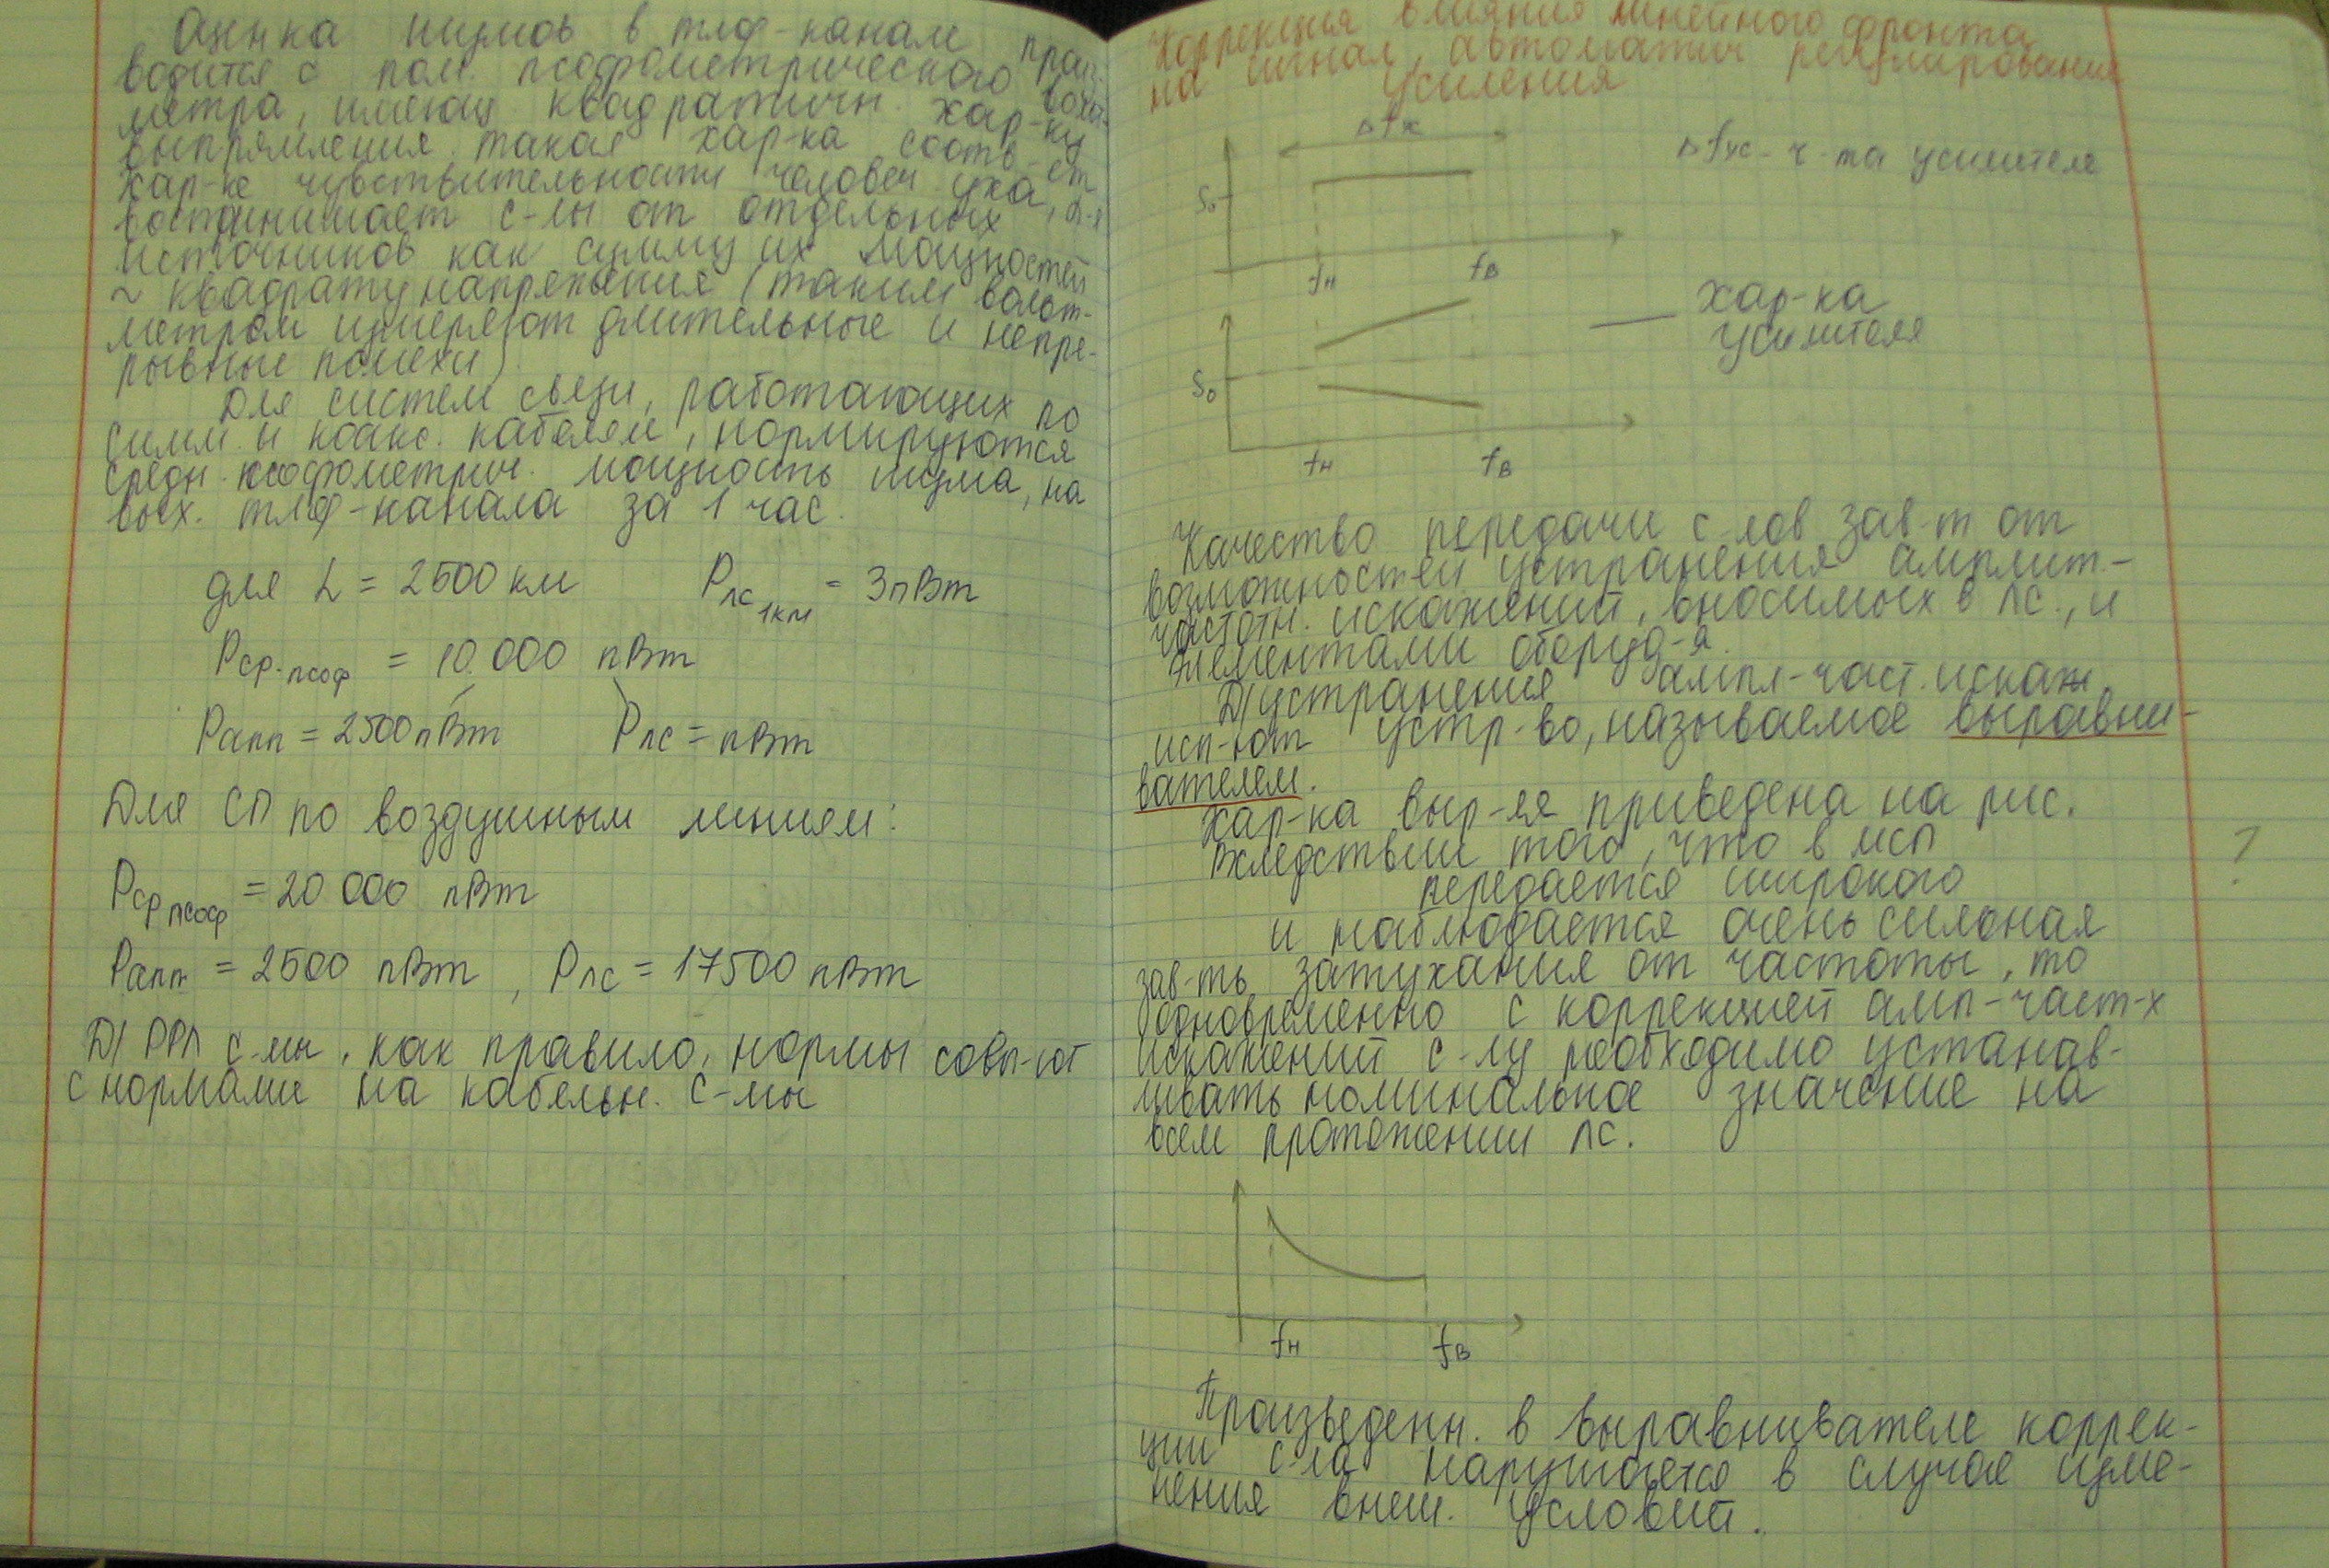 Оценка шумов в тлф-канале произ-
водится с пом. псофометрического вольт-
метра, имеющ квадратичн. хар-ку
выпрямления. такая хар-ка соотв-ет
хар-ке чувствительности человеч. уха, к-е
воспринимает с-лы от отдельных
источников как сумму их мощностей
~ квадрату напряжения (таким вольт-
метром измеряют длительные и непре-
рывные помехи)
Для систем связи, работающих по
симм. и коакс. кабелям, нормируются
средн. псофометрич. мощность шума, на
вых. тлф-канала за 1 час.
для L = 2500 км Pлс 1км = 3пВт
Pср.псоф = 10.000 пВт
Pапп = 2500пВт Pлс = пВт
Для СП по воздушным линиям:
Pср псоф = 20 000 пВт
Pапп = 2500 пВт, Pлс = 17500 пВт
Д/ РРЛ с-мы, как правило, нормы совп-ют
с нормами на кабельн. с-мы
Коррекция влияния линейного фронта
на сигнал, автоматич регулирование
усиления
Δfк
Δfус - ч-та усилителя
S₀
fн fв
хар-ка
усилителя
S₀
fн fв
Качество передачи с-лов зав-т от
возможностей устранения амплит.-
частотн. искажений, вносимых в ЛС., и
элементами оборуд-я.
Д/устранения ампл-част. искаж.
исп-ют устр-во, называемое выравни-
вателем.
Хар-ка выр-ля приведена на рис.
Вследствии того, что в мсп
передается широкого ?
и наблюдается очень сильная
зав-ть затухания от частоты, то
одновременно с коррекцией амп-част-х
искажений с-лу необходимо устанав-
ливать номинальное значение на
всем протяжении ЛС.
fн fв
Произведенн. в выравнивателе коррек-
ции с-ла нарушается в случае изме-
нения внеш. условий.